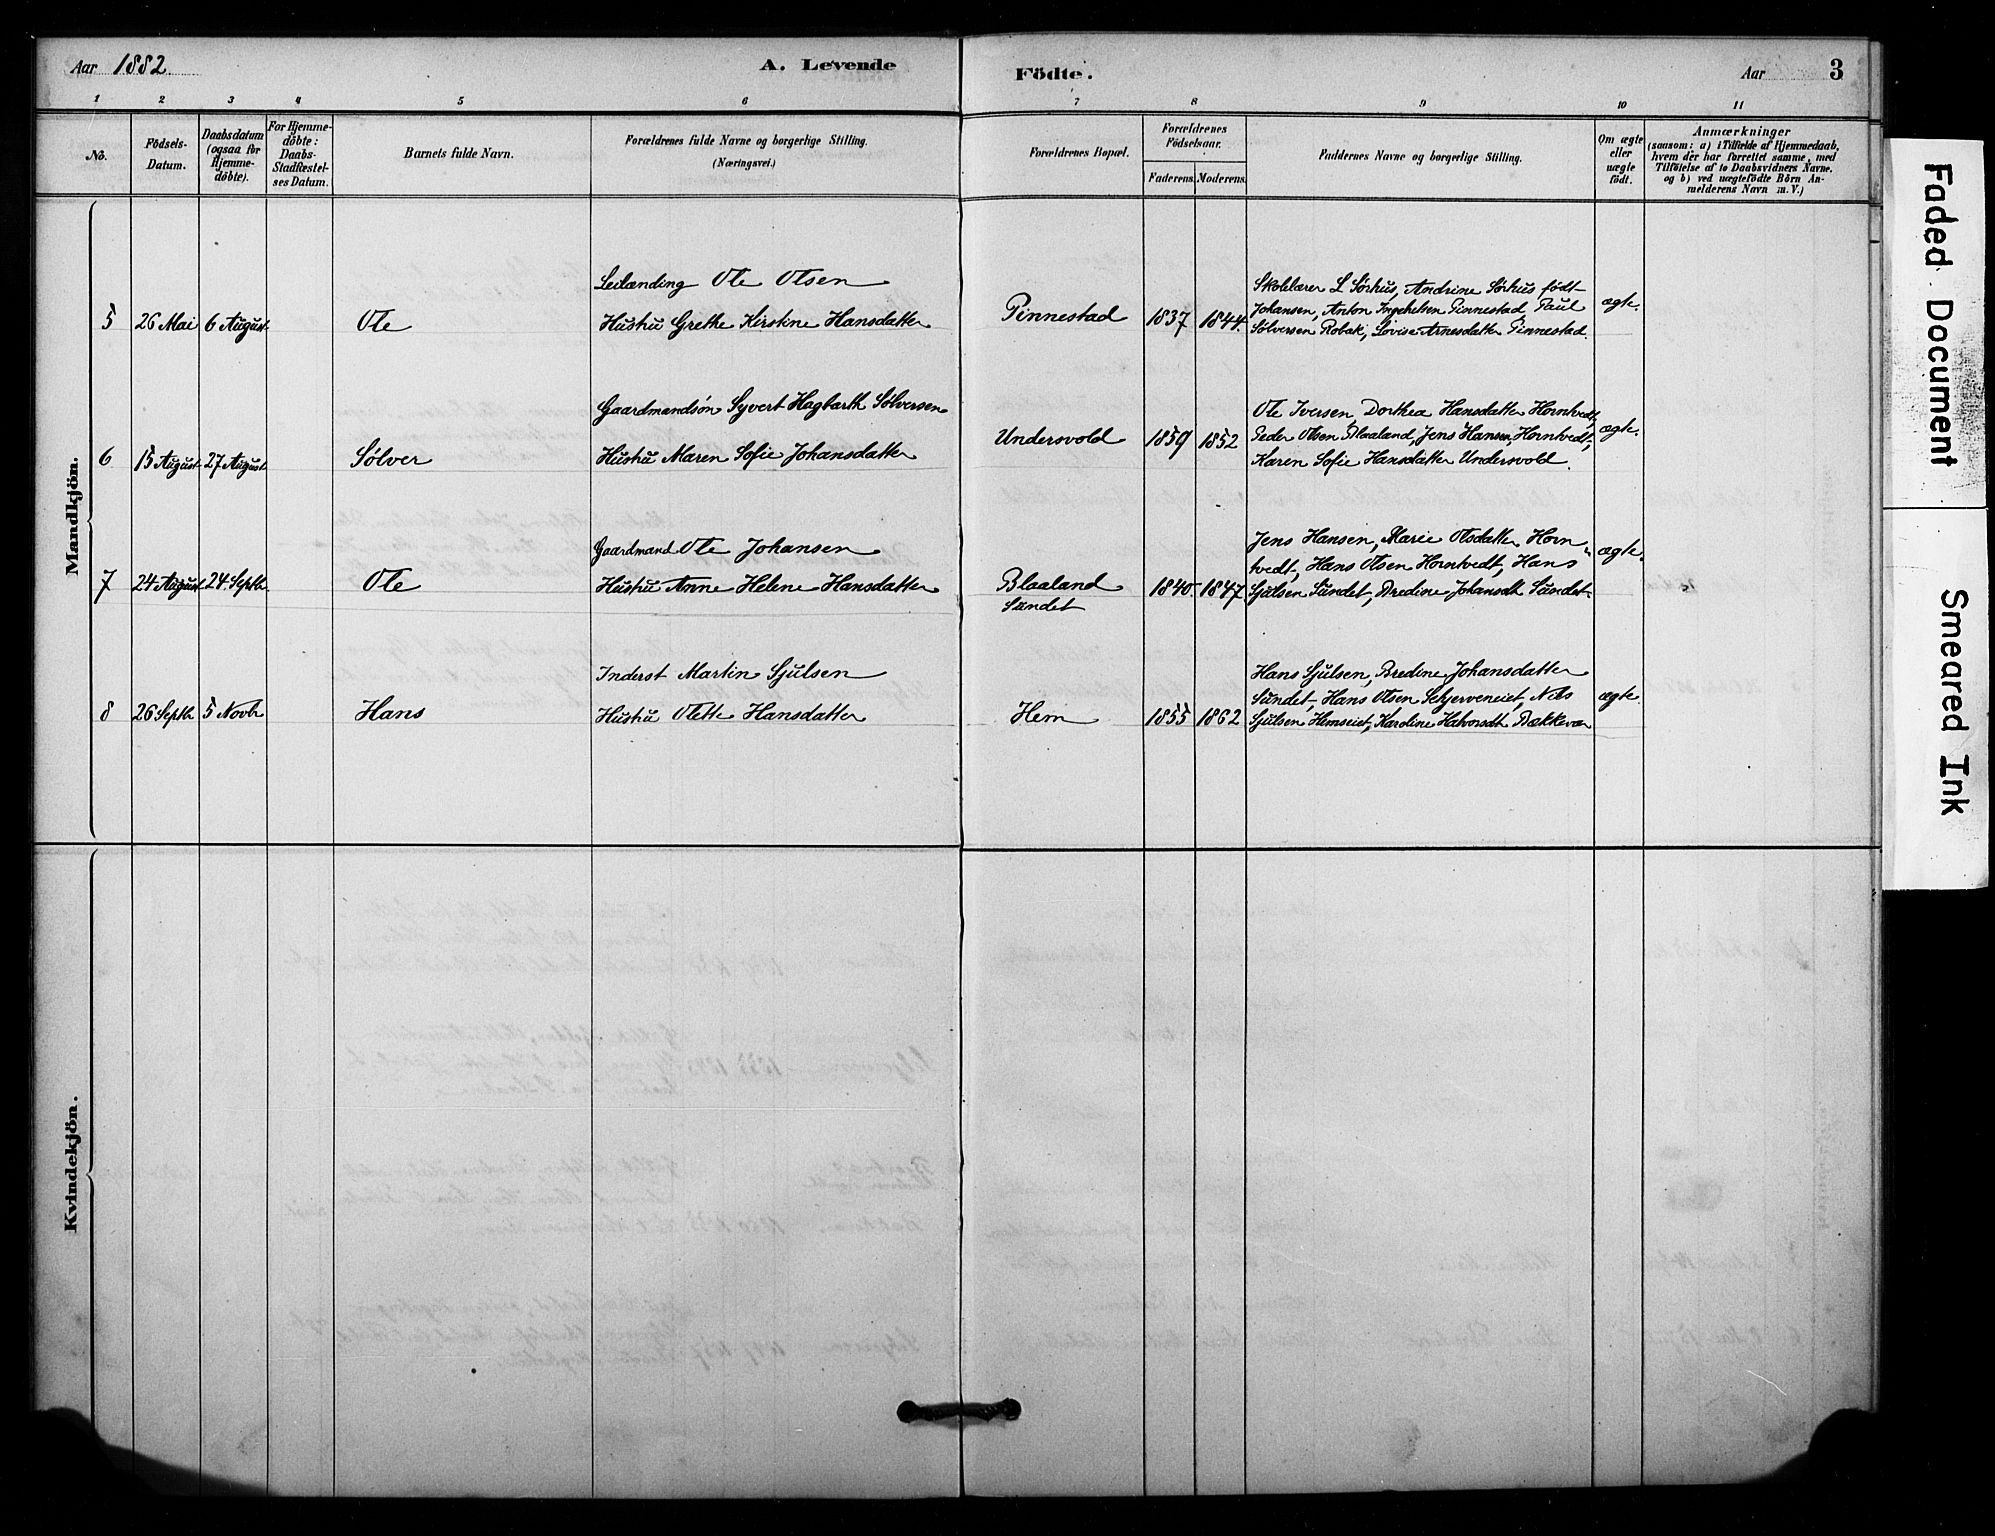 Aar 1882
A. Levende
Födte.
Aar
3
1 2 3 4 5 6 7 8 9 10 11
No.
Födsels-
Datum.
Daabsdatum
(ogsaa for
Hjemme-
döbte).
For Hjemme-
döbte:
Daabs-
Stadfæstel-
ses Datum.
Barnets fulde Navn.
Forældrenes fulde Navne og borgerlige Stilling.
(Næringsvei.)
Forældrenes Bopæl.
Forældrenes
Födselsaar.
Faderens. Moderens.
Faddernes Navne og borgerlige Stilling.
Om ægte
eller
uægte
født.
Anmærkninger
(saasom: a) i Tilfælde af Hjemmedaab,
hvem der har forrettet samme, med
Tilföielse af to Daabsvidners Navne.
og b) ved uægtefödte Börn An-
melderens Navn m. V.)
Mandkjön.
5
26 Mai
6 August
Ole
Leilænding Ole Olsen
Hustru Grethe Kirstine Hansdatter
Pinnestad
1837
1844
Skolelærer L Sørhus, Andrine Sørhus født
Johansen, Anton Ingebretsen Pinnestad Paul
Sølversen Robak, Lovise Arnesdatter Pinnestad.
ægte.
6
15 August
27 August
Sølver
Gaardmandsøn Syvert Hagbarth Sølversen
Hustru Maren Sofie Johansdatter
Undersvold
1859
1852
Ole Iversen, Dorthea Hansdatter Horntvedt,
Peder Olsen Blaaland, Jens Hansen, Horntvedt,
Karen Sofie Hansdatter Undersvold.
ægte.
7
24 August
24 Septbr
Ole
Gaardmand Ole Johansen
Hustru Anne Helene Hansdatter
Blaaland
Sundet
1840
1847
Jens Hansen, Marie Olsdatter Horn
tvedt, Hans Olsen Horntvedt, Hans
Sjulsen Sundet, Bredine Johansdt Sundet
ægte.
8
26 Septbr
5 Novbr
Hans
Inderst Martin Sjulsen
Hustru Olette Hansdatter
Hem
1855
1862
Hans Sjulsen, Bredine Johansdatter
Sundet, Hans Olsen Schjerveneiet, Nils
Sjulsen Hemseiet, Karoline Halvorsdt Bækkevar
ægte.
Kvindekjön.
Faded Document
Smeared Ink